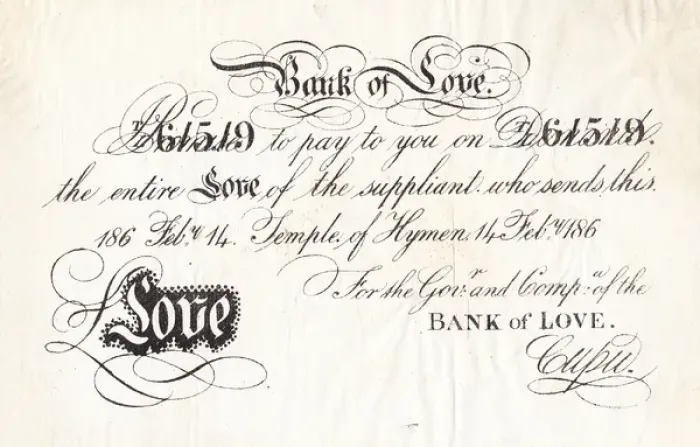 Bank of Love.
I Promise to pay to you on Demand.
№ 61519 № 61519
the entire Love of the suppliant who sends this.
186 Feb.y 14. Temple of Hymen. 14 Feb.y 186
For the Gov.r and Comp.a of the
BANK of LOVE.
Love
Cupid.